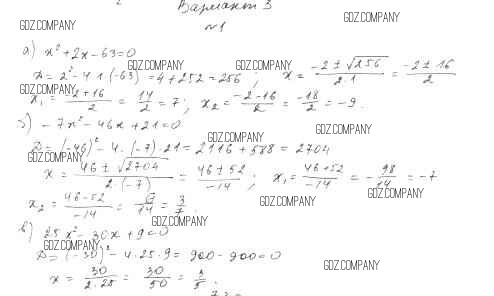 Вариант 3
GDZ.COMPANY GDZ.COMPANY
№1
а) x² + 2x - 63 = 0
GDZ.COMPANY GDZ.COMPANY
D = 2² - 4·1·(-63) = 4 + 252 = 256 ; x = (-2 ± √256)/(2·1) = (-2 ± 16)/2
GDZ.COMPANY
x₁ = (-2+16)/2 = 14/2 = 7; x₂ = (-2-16)/2 = -18/2 = -9.
б) -7x² - 46x + 21 = 0
GDZ.COMPANY GDZ.COMPANY
D = (-46)² - 4·(-7)·21 = 2116 + 588 = 2704
GDZ.COMPANY
x = (46 ± √2704)/(2·(-7)) = (46 ± 52)/(-14) ; x₁ = (46+52)/(-14) = -98/14 = -7
GDZ.COMPANY GDZ.COMPANY
x₂ = (46-52)/(-14) = 6/14 = 3/7
GDZ.COMPANY
в) 25x² - 30x + 9 = 0
GDZ.COMPANY
D = (-30)² - 4·25·9 = 900 - 900 = 0
GDZ.COMPANY
x = 30/(2·25) = 30/50 = 3/5.